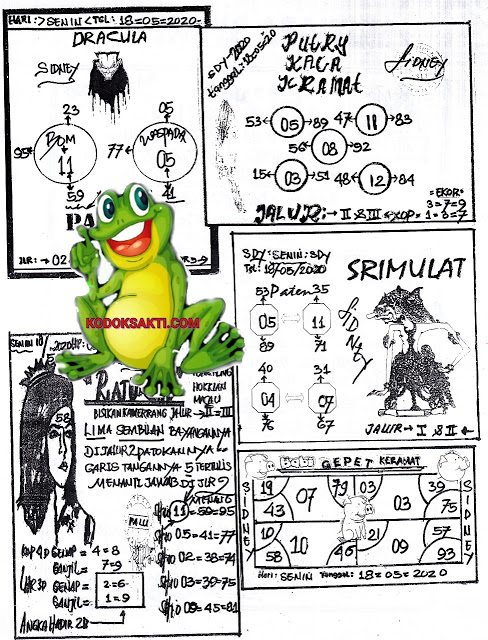 HARI:> SENIN <TGL: 18=05=2020
DRACULA
SIDNEY
23
05
BOM
11
WASPADA
05
77
59
41
SDY-2020
PUTRY
KACA
KRAMAT
SIDNEY
53 05 89
47 11 83
08 92
15 03 51
48 12 84
=EKOR=
3=7=9
JALUR:→ II & III
1=3=7
SDY=SENIN:SDY
TGL: 18/05/2020
SRIMULAT
53 Paten 35
05 11
SIDNEY
89 71
40 31
04 07
76 67
JALUR→ I & II
KODOKSAKTI.COM
SENIN 18
HOKKIAN
MACAU
58
BISIKAN KAMERRANG JALUR→II=III
LIMA SEMBILAN BAYANGANNYA
DIJALUR 2 PATOKANNYA
GARIS TANGANNYA 5 TERTULIS
MENANTI JAWAB DI JLR 2
PAUL
SHIO 11=59=95
SHIO 05=41=77
SHIO 02=38=74
SHIO 03=39=75
SHIO 09=45=81
KOP 4D GENAP = 4=8
GANJIL= 7=9
LAR 3D GENAP = 2=6
GANJIL= 1=9
ANGKA HADIR 2D
BABI GEPET KERAMAT
SIDNEY
19 07 79 03 39
43 03 75
10 10 21 57
58 46 09 93
SIDNEY
Hari: SENIN Tanggal: 18=05=2020